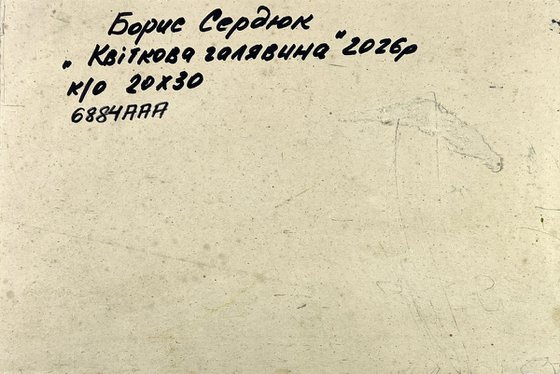 Борис Сердюк
„Квіткова галявина" 2026р
к/о 20х30
6884AAA